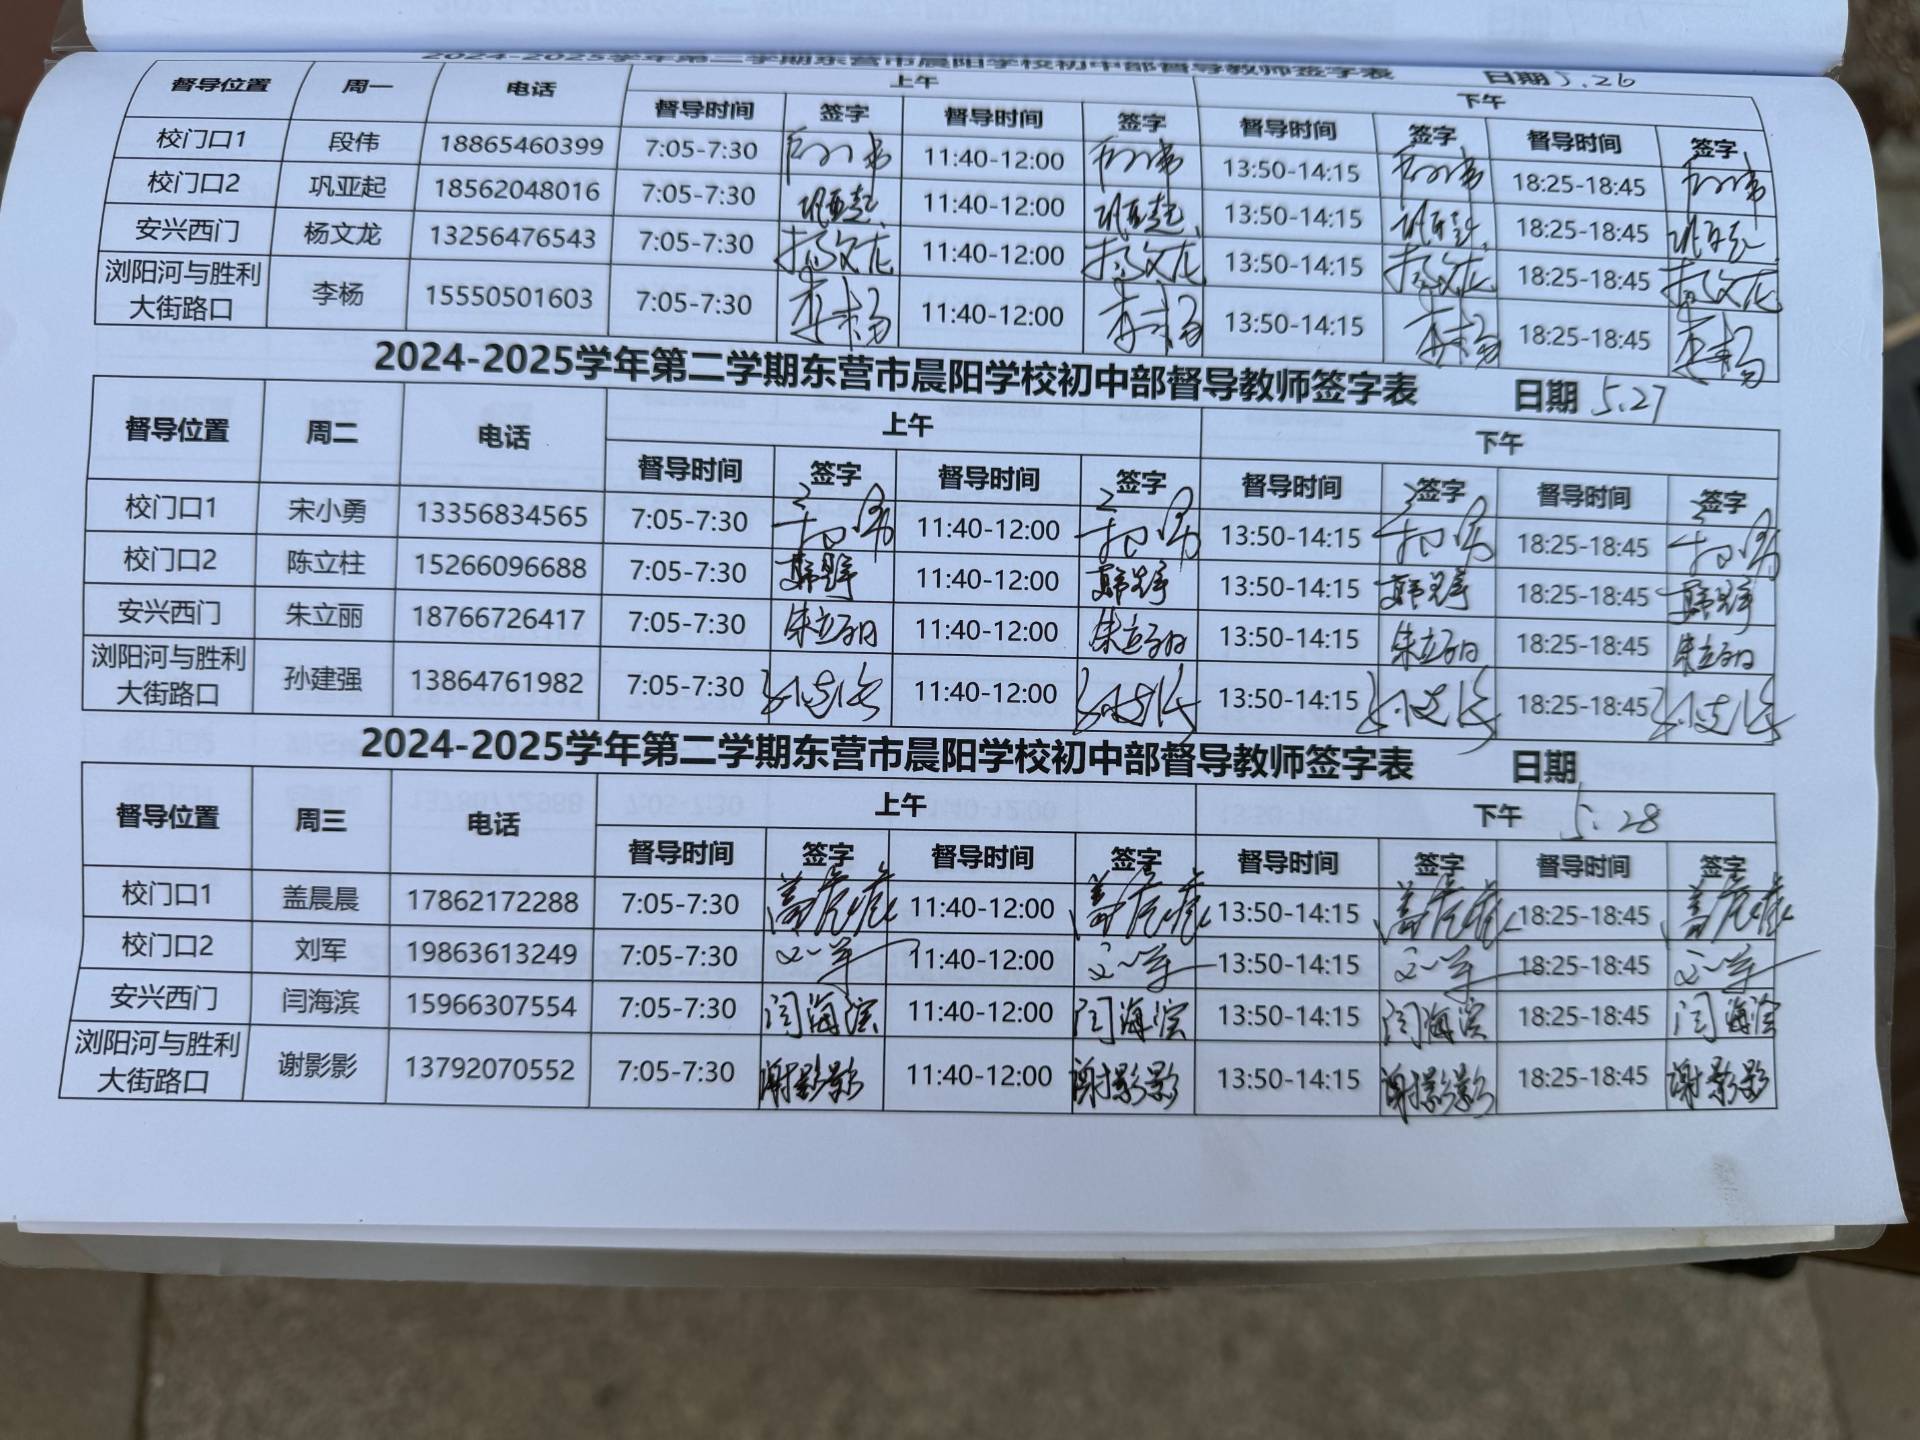 2024-2025学年第二学期东营市晨阳学校初中部督导教师签字表 日期 5.26
督导位置 周一 电话 上午 下午
督导时间 签字 督导时间 签字 督导时间 签字 督导时间 签字
校门口1 段伟 18865460399 7:05-7:30 段伟 11:40-12:00 段伟 13:50-14:15 段伟 18:25-18:45 段伟
校门口2 巩亚起 18562048016 7:05-7:30 巩亚起 11:40-12:00 巩亚起 13:50-14:15 巩亚起 18:25-18:45 巩亚起
安兴西门 杨文龙 13256476543 7:05-7:30 杨文龙 11:40-12:00 杨文龙 13:50-14:15 杨文龙 18:25-18:45 杨文龙
浏阳河与胜利
大街路口 李杨 15550501603 7:05-7:30 李杨 11:40-12:00 李杨 13:50-14:15 李杨 18:25-18:45 李杨
2024-2025学年第二学期东营市晨阳学校初中部督导教师签字表 日期 5.27
督导位置 周二 电话 上午 下午
督导时间 签字 督导时间 签字 督导时间 签字 督导时间 签字
校门口1 宋小勇 13356834565 7:05-7:30 11:40-12:00 13:50-14:15 18:25-18:45
校门口2 陈立柱 15266096688 7:05-7:30 11:40-12:00 13:50-14:15 18:25-18:45
安兴西门 朱立丽 18766726417 7:05-7:30 朱立丽 11:40-12:00 朱立丽 13:50-14:15 朱立丽 18:25-18:45 朱立丽
浏阳河与胜利
大街路口 孙建强 13864761982 7:05-7:30 孙建强 11:40-12:00 孙建强 13:50-14:15 孙建强 18:25-18:45 孙建强
2024-2025学年第二学期东营市晨阳学校初中部督导教师签字表 日期
督导位置 周三 电话 上午 下午 5.28
督导时间 签字 督导时间 签字 督导时间 签字 督导时间 签字
校门口1 盖晨晨 17862172288 7:05-7:30 盖晨晨 11:40-12:00 盖晨晨 13:50-14:15 盖晨晨 18:25-18:45 盖晨晨
校门口2 刘军 19863613249 7:05-7:30 刘军 11:40-12:00 刘军 13:50-14:15 刘军 18:25-18:45 刘军
安兴西门 闫海滨 15966307554 7:05-7:30 闫海滨 11:40-12:00 闫海滨 13:50-14:15 闫海滨 18:25-18:45 闫海滨
浏阳河与胜利
大街路口 谢影影 13792070552 7:05-7:30 谢影影 11:40-12:00 谢影影 13:50-14:15 谢影影 18:25-18:45 谢影影